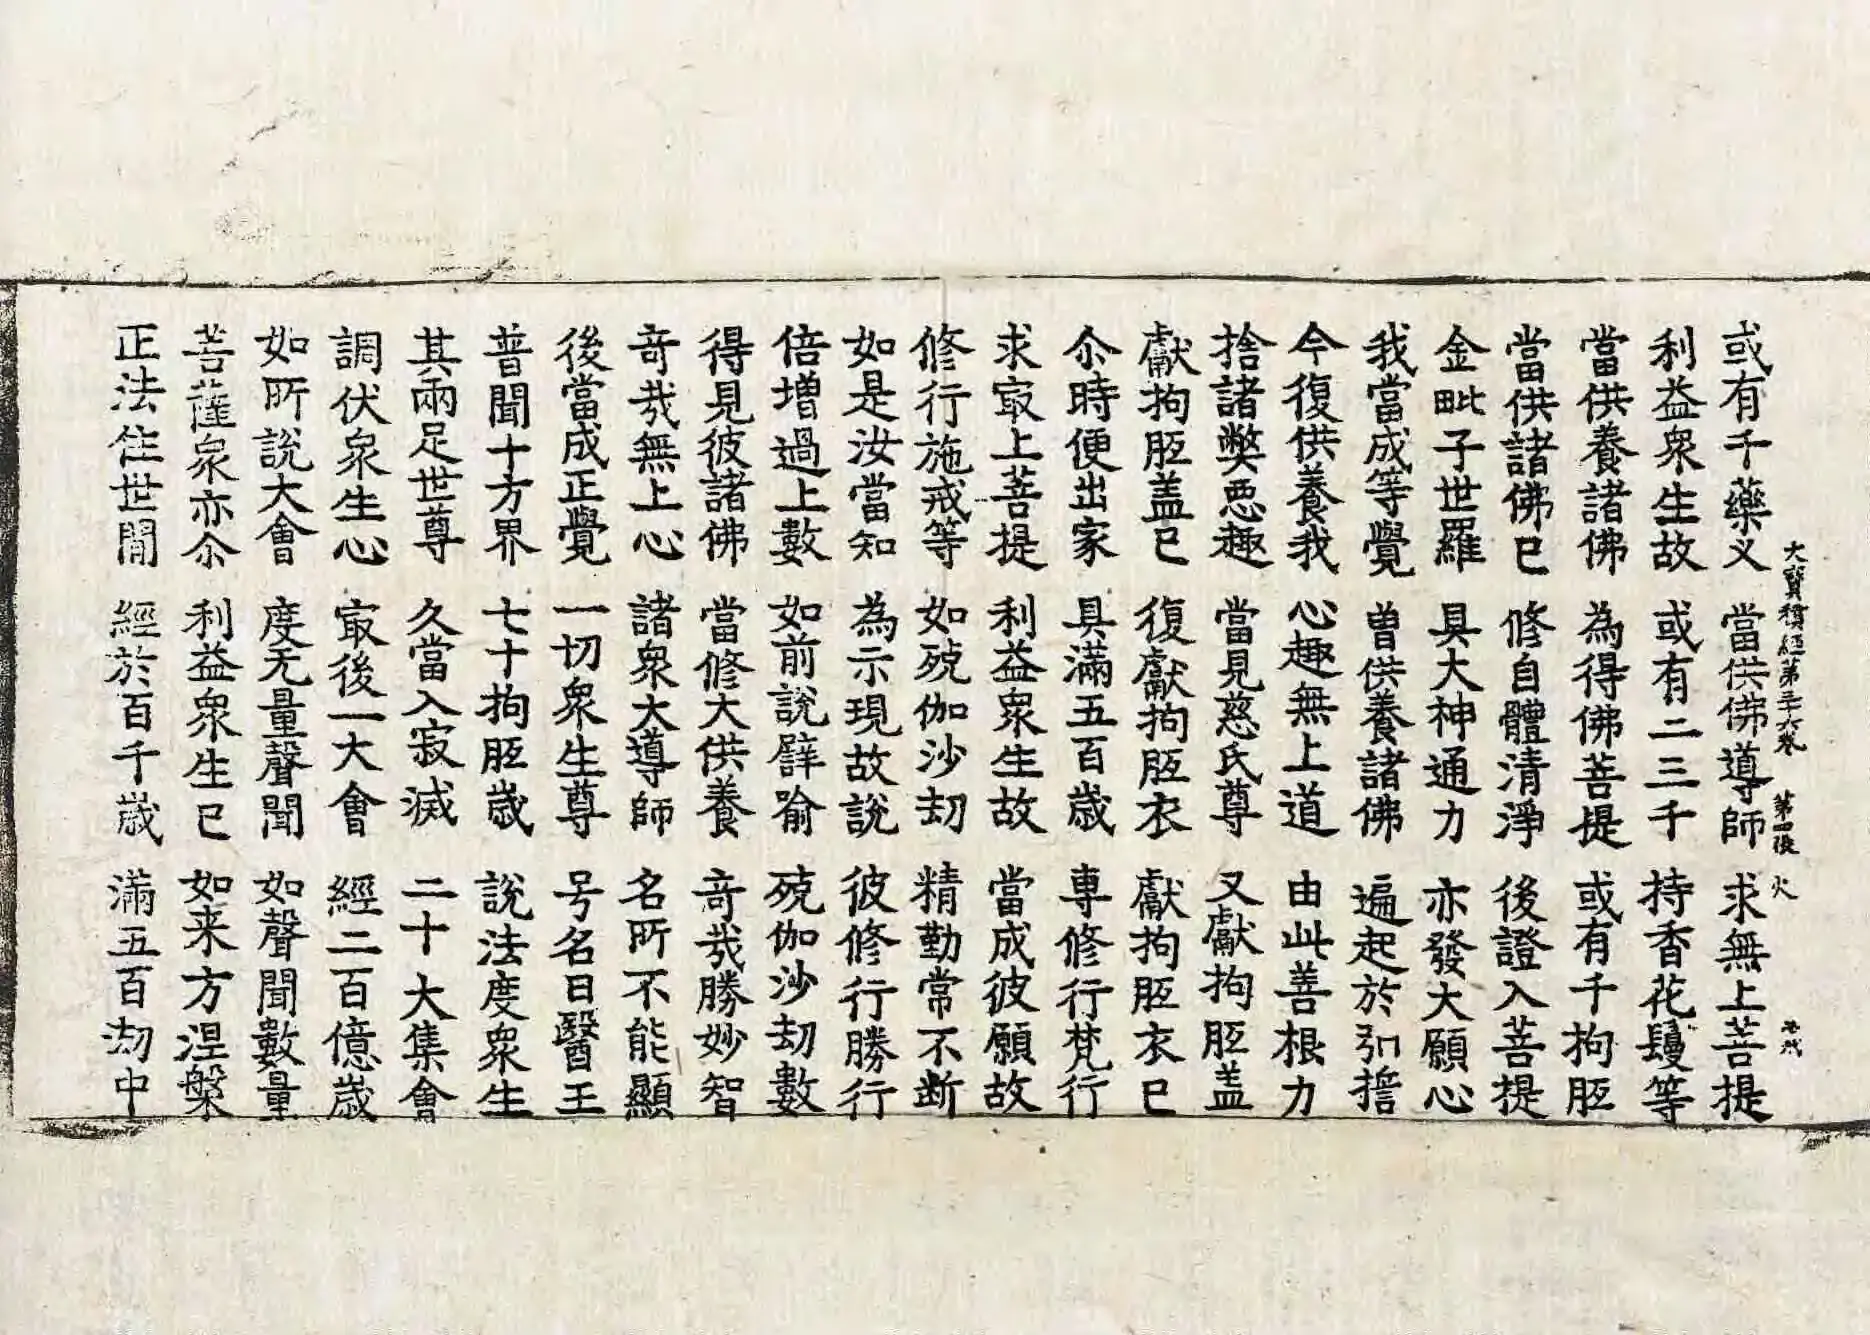 大寶積經第三十六卷 第四張 火
或有千藥叉 當供佛導師 求無上菩提
利益衆生故 或有二三千 持香花鬘等
當供養諸佛 為得佛菩提 或有千拘胝
當供諸佛已 修自體清淨 後證入菩提
金毗子世羅 具大神通力 亦發大願心
我當成等覺 曾供養諸佛 遍起於弘誓
今復供養我 心趣無上道 由此善根力
捨諸弊惡趣 當見慈氏尊 又獻拘胝盖
獻拘胝盖已 復獻拘胝衣 獻拘胝衣已
尒時便出家 具滿五百歲 專修行梵行
求冣上菩提 利益衆生故 當成彼願故
修行施戒等 如殑伽沙劫 精勤常不断
如是汝當知 為示現故說 彼修行勝行
倍增過上數 如前說譬喻 殑伽沙劫數
得見彼諸佛 當修大供養 奇哉勝妙智
奇哉無上心 諸衆大導師 名所不能顯
後當成正覺 一切衆生尊 号名曰醫王
普聞十方界 七十拘胝歲 說法度衆生
其兩足世尊 久當入寂滅 二十大集會
調伏衆生心 冣後一大會 經二百億歲
如所說大會 度无量聲聞 如聲聞數量
菩薩衆亦尒 利益衆生已 如来方涅槃
正法住世間 經於百千歲 滿五百劫中